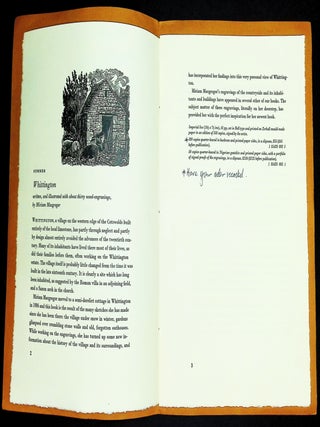 SUMMER
Whittington
written, and illustrated with about thirty wood-engravings,
by Miriam Macgregor
WHITTINGTON, a village on the western edge of the Cotswolds built
of the local limestone, has partly through neglect and partly
by design almost entirely avoided the advances of the twentieth cen-
tury. Many of its inhabitants have lived there most of their lives, as
did their families before them, often working on the Whittington
estate. The village itself is probably little changed from the time it was
built in the late sixteenth century. It is clearly a site which has long
been inhabited, as suggested by the Roman villa in an adjoining field,
and a Saxon arch in the church.
Miriam Macgregor moved to a semi-derelict cottage in Whittington
in 1986 and this book is the result of the many sketches she has made
since she has been there: the village under snow in winter, gardens
glimpsed over crumbling stone walls and old, forgotten outhouses.
While working on the engravings, she has turned up some new in-
formation about the history of the village and its surroundings, and
2
has incorporated her findings into this very personal view of Whitting-
ton.
Miriam Macgregor's engravings of the countryside and its inhabi-
tants and buildings have appeared in several other of our books. The
subject matter of these engravings, drawn from her doorstep, has
provided her with the perfect inspiration for her newest book.
before publication).
before publication).
Have your order recorded.
3